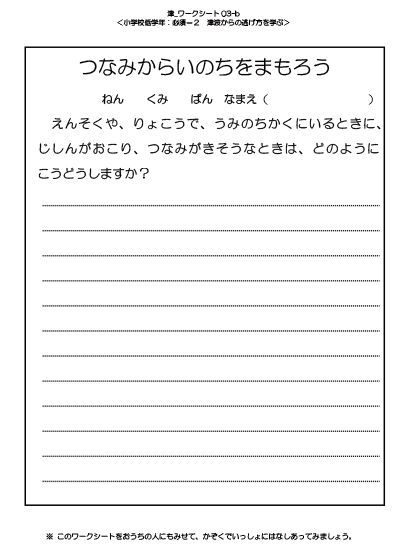 津_ワークシート03-b
＜小学校低学年：必須－２　津波からの逃げ方を学ぶ＞
つなみからいのちをまもろう
ねん　　くみ　　ばん　なまえ（　　　　　　　　　）
えんそくや、りょこうで、うみのちかくにいるときに、
じしんがおこり、つなみがきそうなときは、どのように
こうどうしますか？
※ このワークシートをおうちの人にもみせて、かぞくでいっしょにはなしあってみましょう。